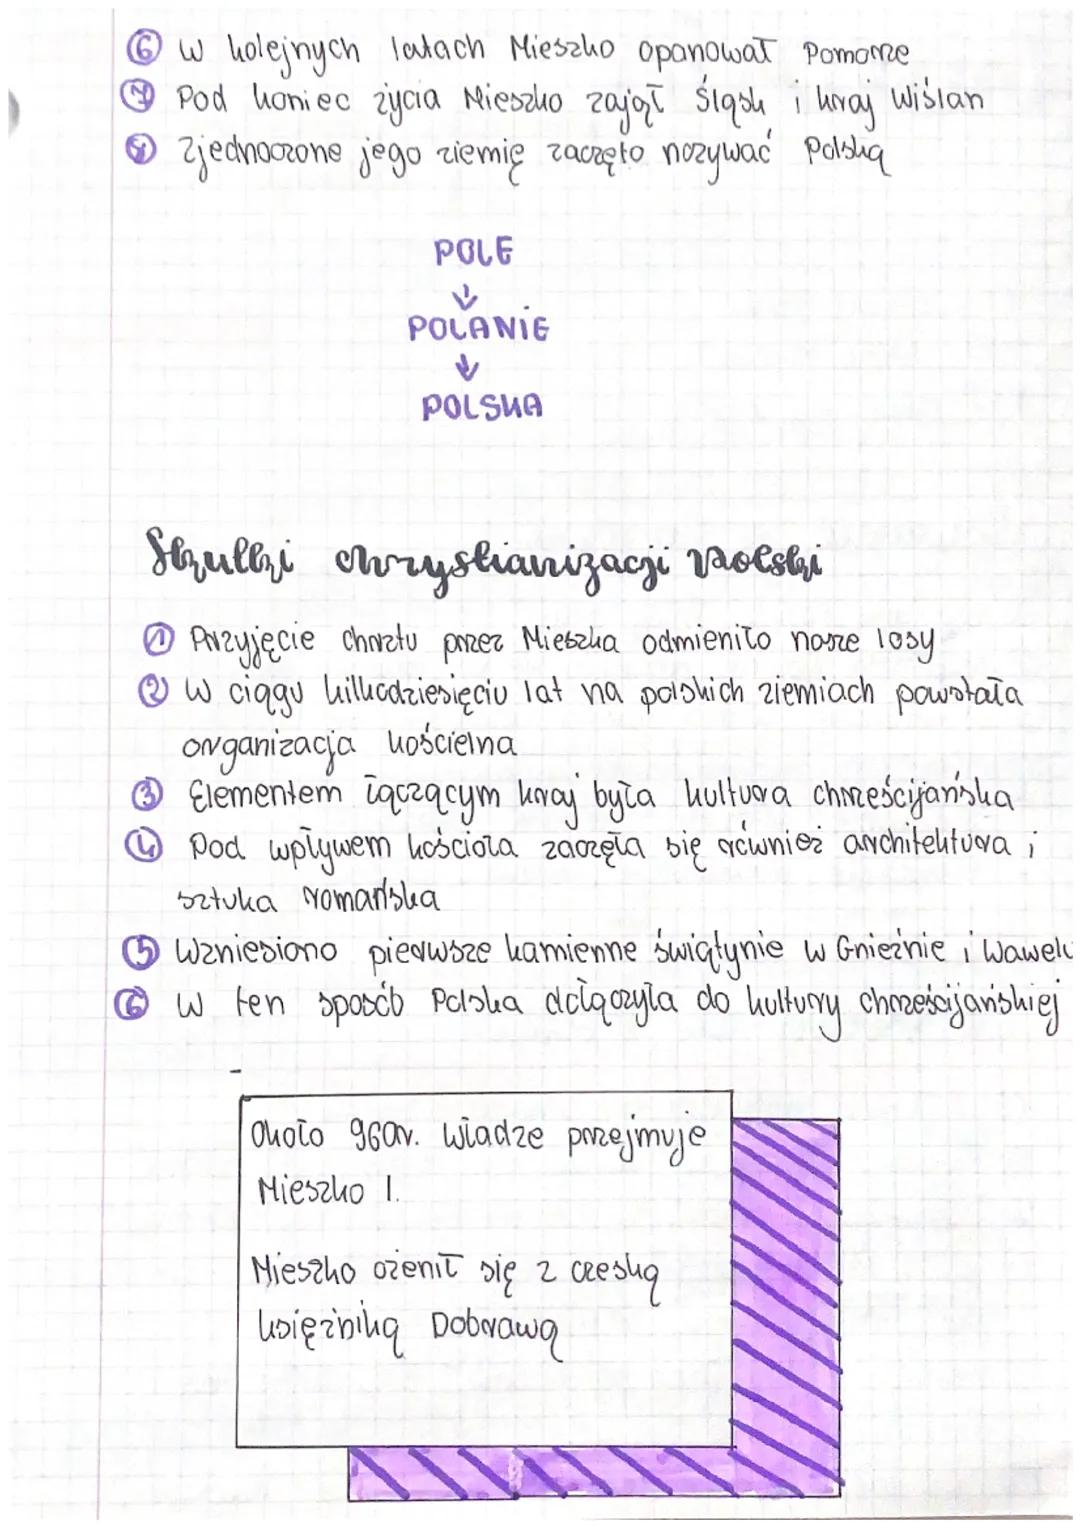 6 W kolejnych latach Mieszko opanował Pomorze
7 Pod koniec życia Mieszko zajął Śląsk i kraj Wiślan
8 Zjednoczone jego ziemię zaczęto nazywać Polską
POLE
↓
POLANIE
↓
POLSKA
Skutki chrystianizacji Polski
1 Przyjęcie chrztu przez Mieszka odmieniło nasze losy
2 W ciągu kilkudziesięciu lat na polskich ziemiach powstała
organizacja kościelna
3 Elementem łączącym kraj była kultura chrześcijańska
4 Pod wpływem kościoła zaczęła się również architektura i
sztuka romańska
5 Wzniesiono pierwsze kamienne świątynie w Gnieźnie i Wawelu
6 W ten sposób Polska dołączyła do kultury chrześcijańskiej
Około 960r. władze przejmuje
Mieszko I.
Mieszko ożenił się z czeską
księżniką Dobrawą